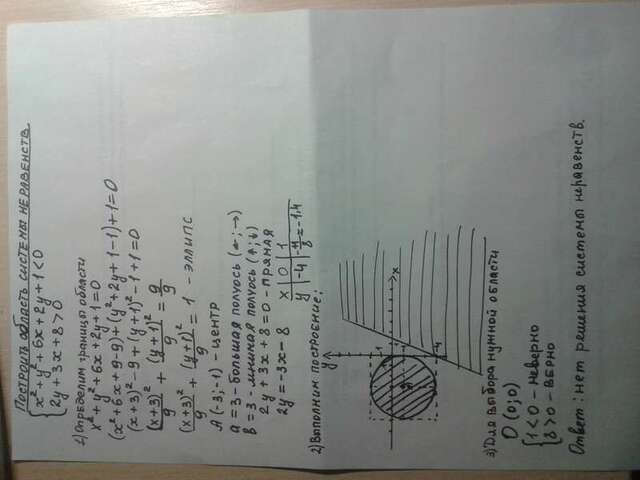 ПОСТРОИТЬ ОБЛАСТЬ СИСТЕМЫ НЕРАВЕНСТВ.
{ x² + y² + 6x + 2y + 1 < 0
2y + 3x + 8 > 0
1) Определим границы области
x² + y² + 6x + 2y + 1 = 0
(x² + 6x + 9 - 9) + (y² + 2y + 1 - 1) + 1 = 0
(x+3)² - 9 + (y+1)² - 1 + 1 = 0
(x+3)²/9 + (y+1)²/9 = 9/9
(x+3)²/9 + (y+1)²/9 = 1 - эллипс
A (-3; -1) - центр
a = 3 - большая полуось (←; →)
b = 3 - мнимая полуось (↑; ↓)
2y + 3x + 8 = 0 - прямая
2y = -3x - 8
x | 0 | 1
y | -4 | -11/2 = -1,4
2) Выполним построение:
y
x
1
-4
3) Для выбора нужной области
O (0; 0)
{ 1 < 0 - неверно
8 > 0 - верно
Ответ: нет решения системы неравенств.